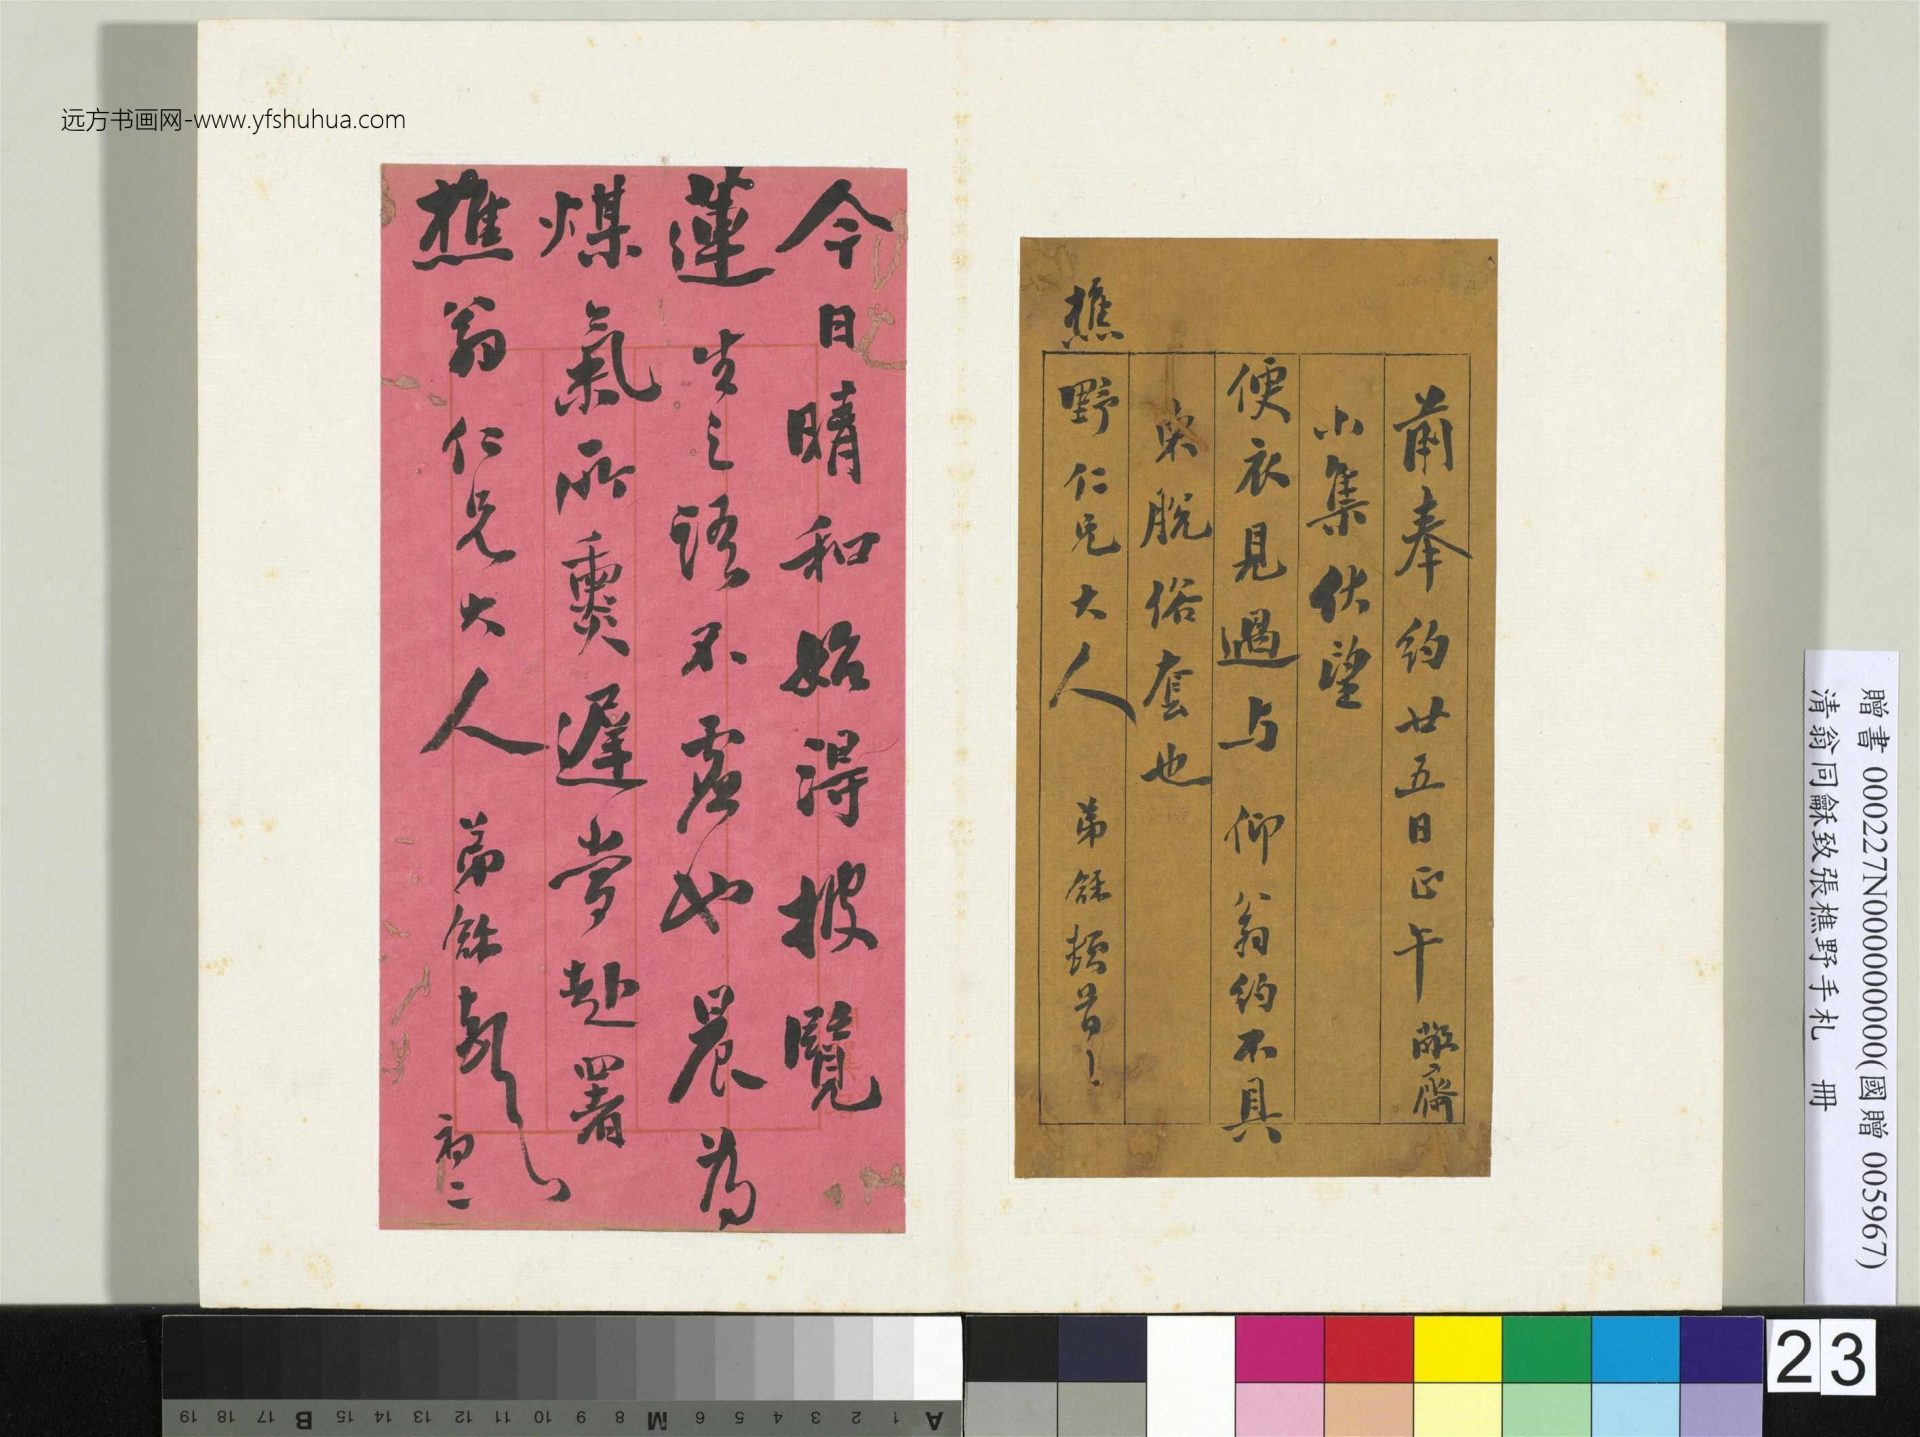 远方书画网-www.yfshuhua.com
前奉約廿五日正午敝齋
小集伏望
便衣見過与仰翁約不具
柬脫俗套也
樵野仁兄大人 弟龢頓首
今日晴和始得披覽
蓮生之語不虛也晨為
煤氣所熏遲當赴署
樵翁仁兄大人 弟龢頓
初二
贈書 000227N000000000(國贈 005967)
清翁同龢致張樵野手札 冊
23
A 1 2 3 4 5 6 M 8 9 10 11 12 13 14 15 B 17 18 19